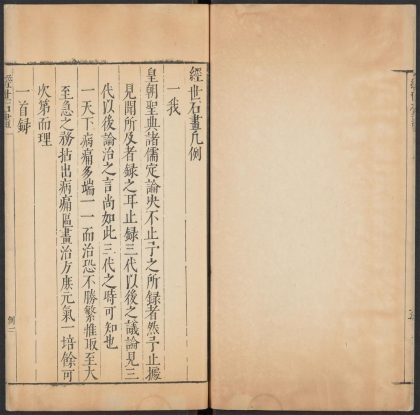 經世石畫凡例
一我
皇朝聖典諸儒定論央不止予之所錄者然予止據
見聞所及者錄之耳止錄三代以後之議論見三
代以後論治之言尚如此三代之時可知也
一天下病痛多端一一而治恐不勝繁惟取至大
至急之務拈出病痛區畫治方庶元氣一培餘可
次第而理
一首錄
經世石畫
例二